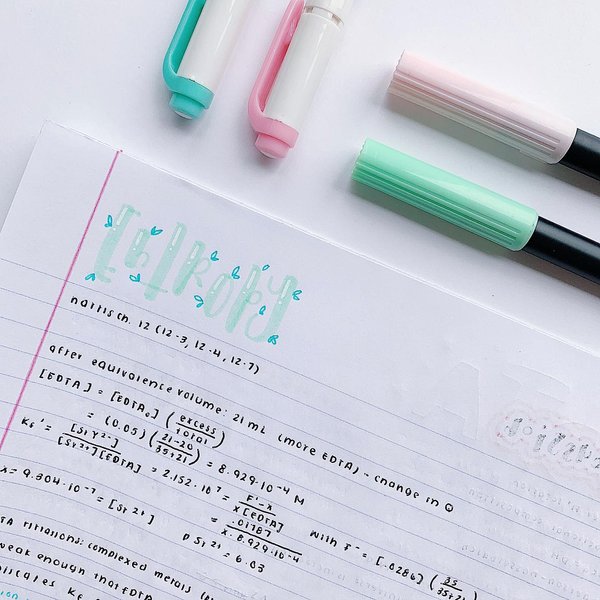 EntROPY
harris ch. 12 (12-3, 12-4, 12-7)
after equivalence volume: 21 mL (more EDTA) - change in Q
[EDTA] = [EDTA₀] (excess/total)
= (0.05) (21-20/35+21) = 8.929·10⁻⁴ M
Kf' = [SrY²⁻]/[Sr²⁺][EDTA] = 2.152·10⁷ = F'-x/x[EDTA]
= .01787/x·8.929·10⁻⁴ with F' = [.0286] (35/35+21)
x = 9.304·10⁻⁷ = [Sr²⁺] pSr²⁺ = 6.03
TA titrations: complexed metals
weak enough that EDTA
Kf